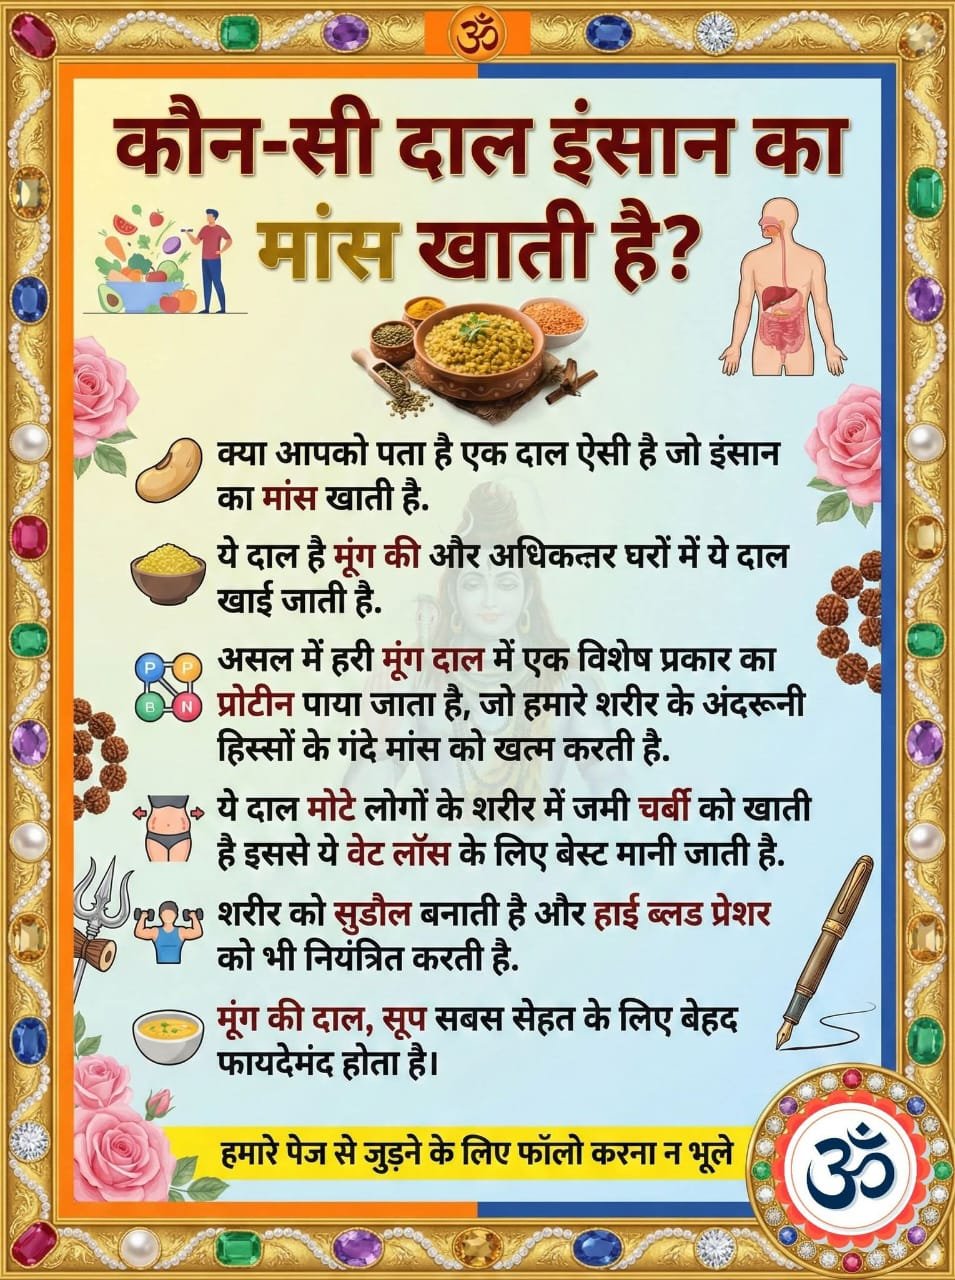 ॐ
कौन-सी दाल इंसान का
मांस खाती है?
क्या आपको पता है एक दाल ऐसी है जो इंसान
का मांस खाती है.
ये दाल है मूंग की और अधिकतर घरों में ये दाल
खाई जाती है.
असल में हरी मूंग दाल में एक विशेष प्रकार का
प्रोटीन पाया जाता है, जो हमारे शरीर के अंदरूनी
हिस्सों के गंदे मांस को खत्म करती है.
P P
B N
ये दाल मोटे लोगों के शरीर में जमी चर्बी को खाती
है इससे ये वेट लॉस के लिए बेस्ट मानी जाती है.
शरीर को सुडौल बनाती है और हाई ब्लड प्रेशर
को भी नियंत्रित करती है.
मूंग की दाल, सूप सबस सेहत के लिए बेहद
फायदेमंद होता है।
हमारे पेज से जुड़ने के लिए फॉलो करना न भूले
ॐ